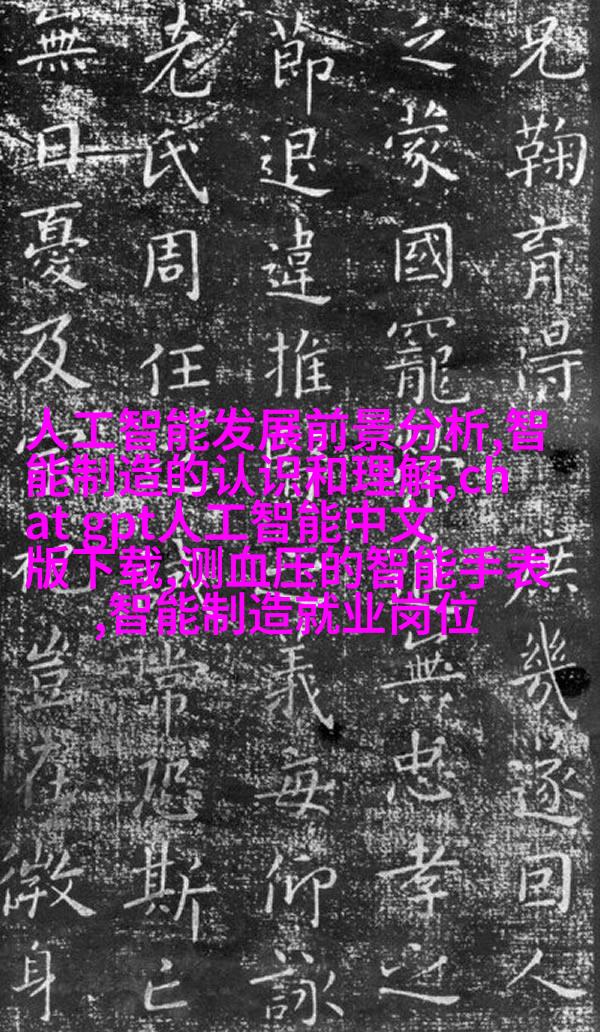 兄鞠育得庶幾遂因人
之蒙國寵無忠孝之
節退違推賢義每仰詠
老氏周任誡常恐斯亡
無日憂及豈在微身
人工智能发展前景分析,智
能制造的认识和理解,ch
at gpt人工智能中文
版下载,测血压的智能手表
,智能制造就业岗位